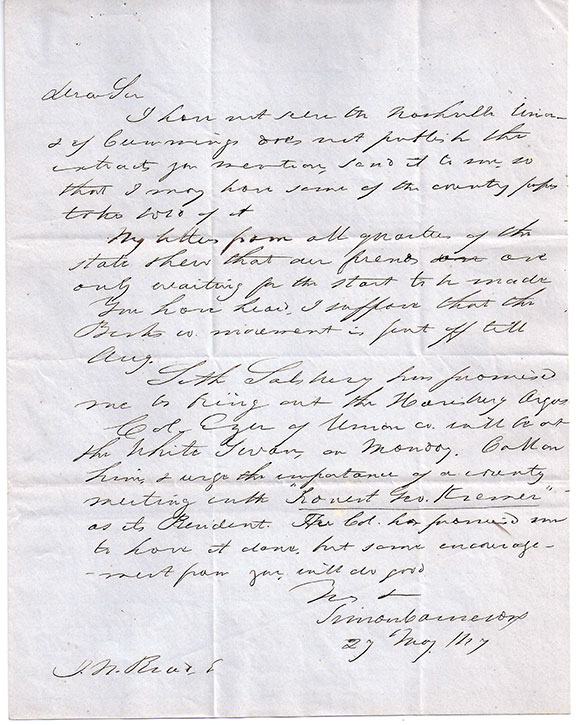 Dear Sir
I have not seen the Nashville Union
& if Cummings does not publish the
extracts you mention, send it to me, so
that I may have some of the country papers
take hold of it
My letters from all quarters of the
state shew that our friends are
only waiting for the start to be made
You have head, I suppose that the
Berks co. movement is put off till
Aug.
Seth Salsbery has promised
me to bring out the Harisburg Argus
Col. Eyer of Union co. will be at
the White Swan, on Monday. Call on
him, & urge the importance of a county
meeting with "Honest Geo. Kremer"
as its President. The Col. has promised me
to have it done, but some encourage-
-ment from you, will do good
Simon Cameron
27 May